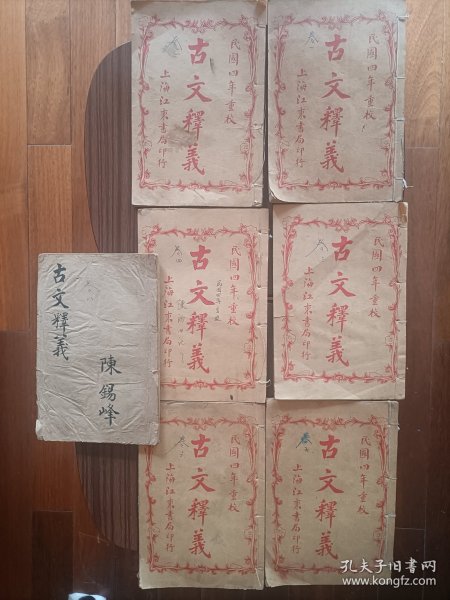 民國四年重校
古文釋義
上海江東書局印行
民國四年重校
古文釋義
上海江東書局印行
卷
民國四年重校
古文釋義
上海江東書局印行
卷四
民國四年重校
古文釋義
上海江東書局印行
古文釋義
陳錫峰
民國四年重校
古文釋義
上海江東書局印行
民國四年重校
古文釋義
上海江東書局印行
孔夫子旧书网
www.kongfz.com